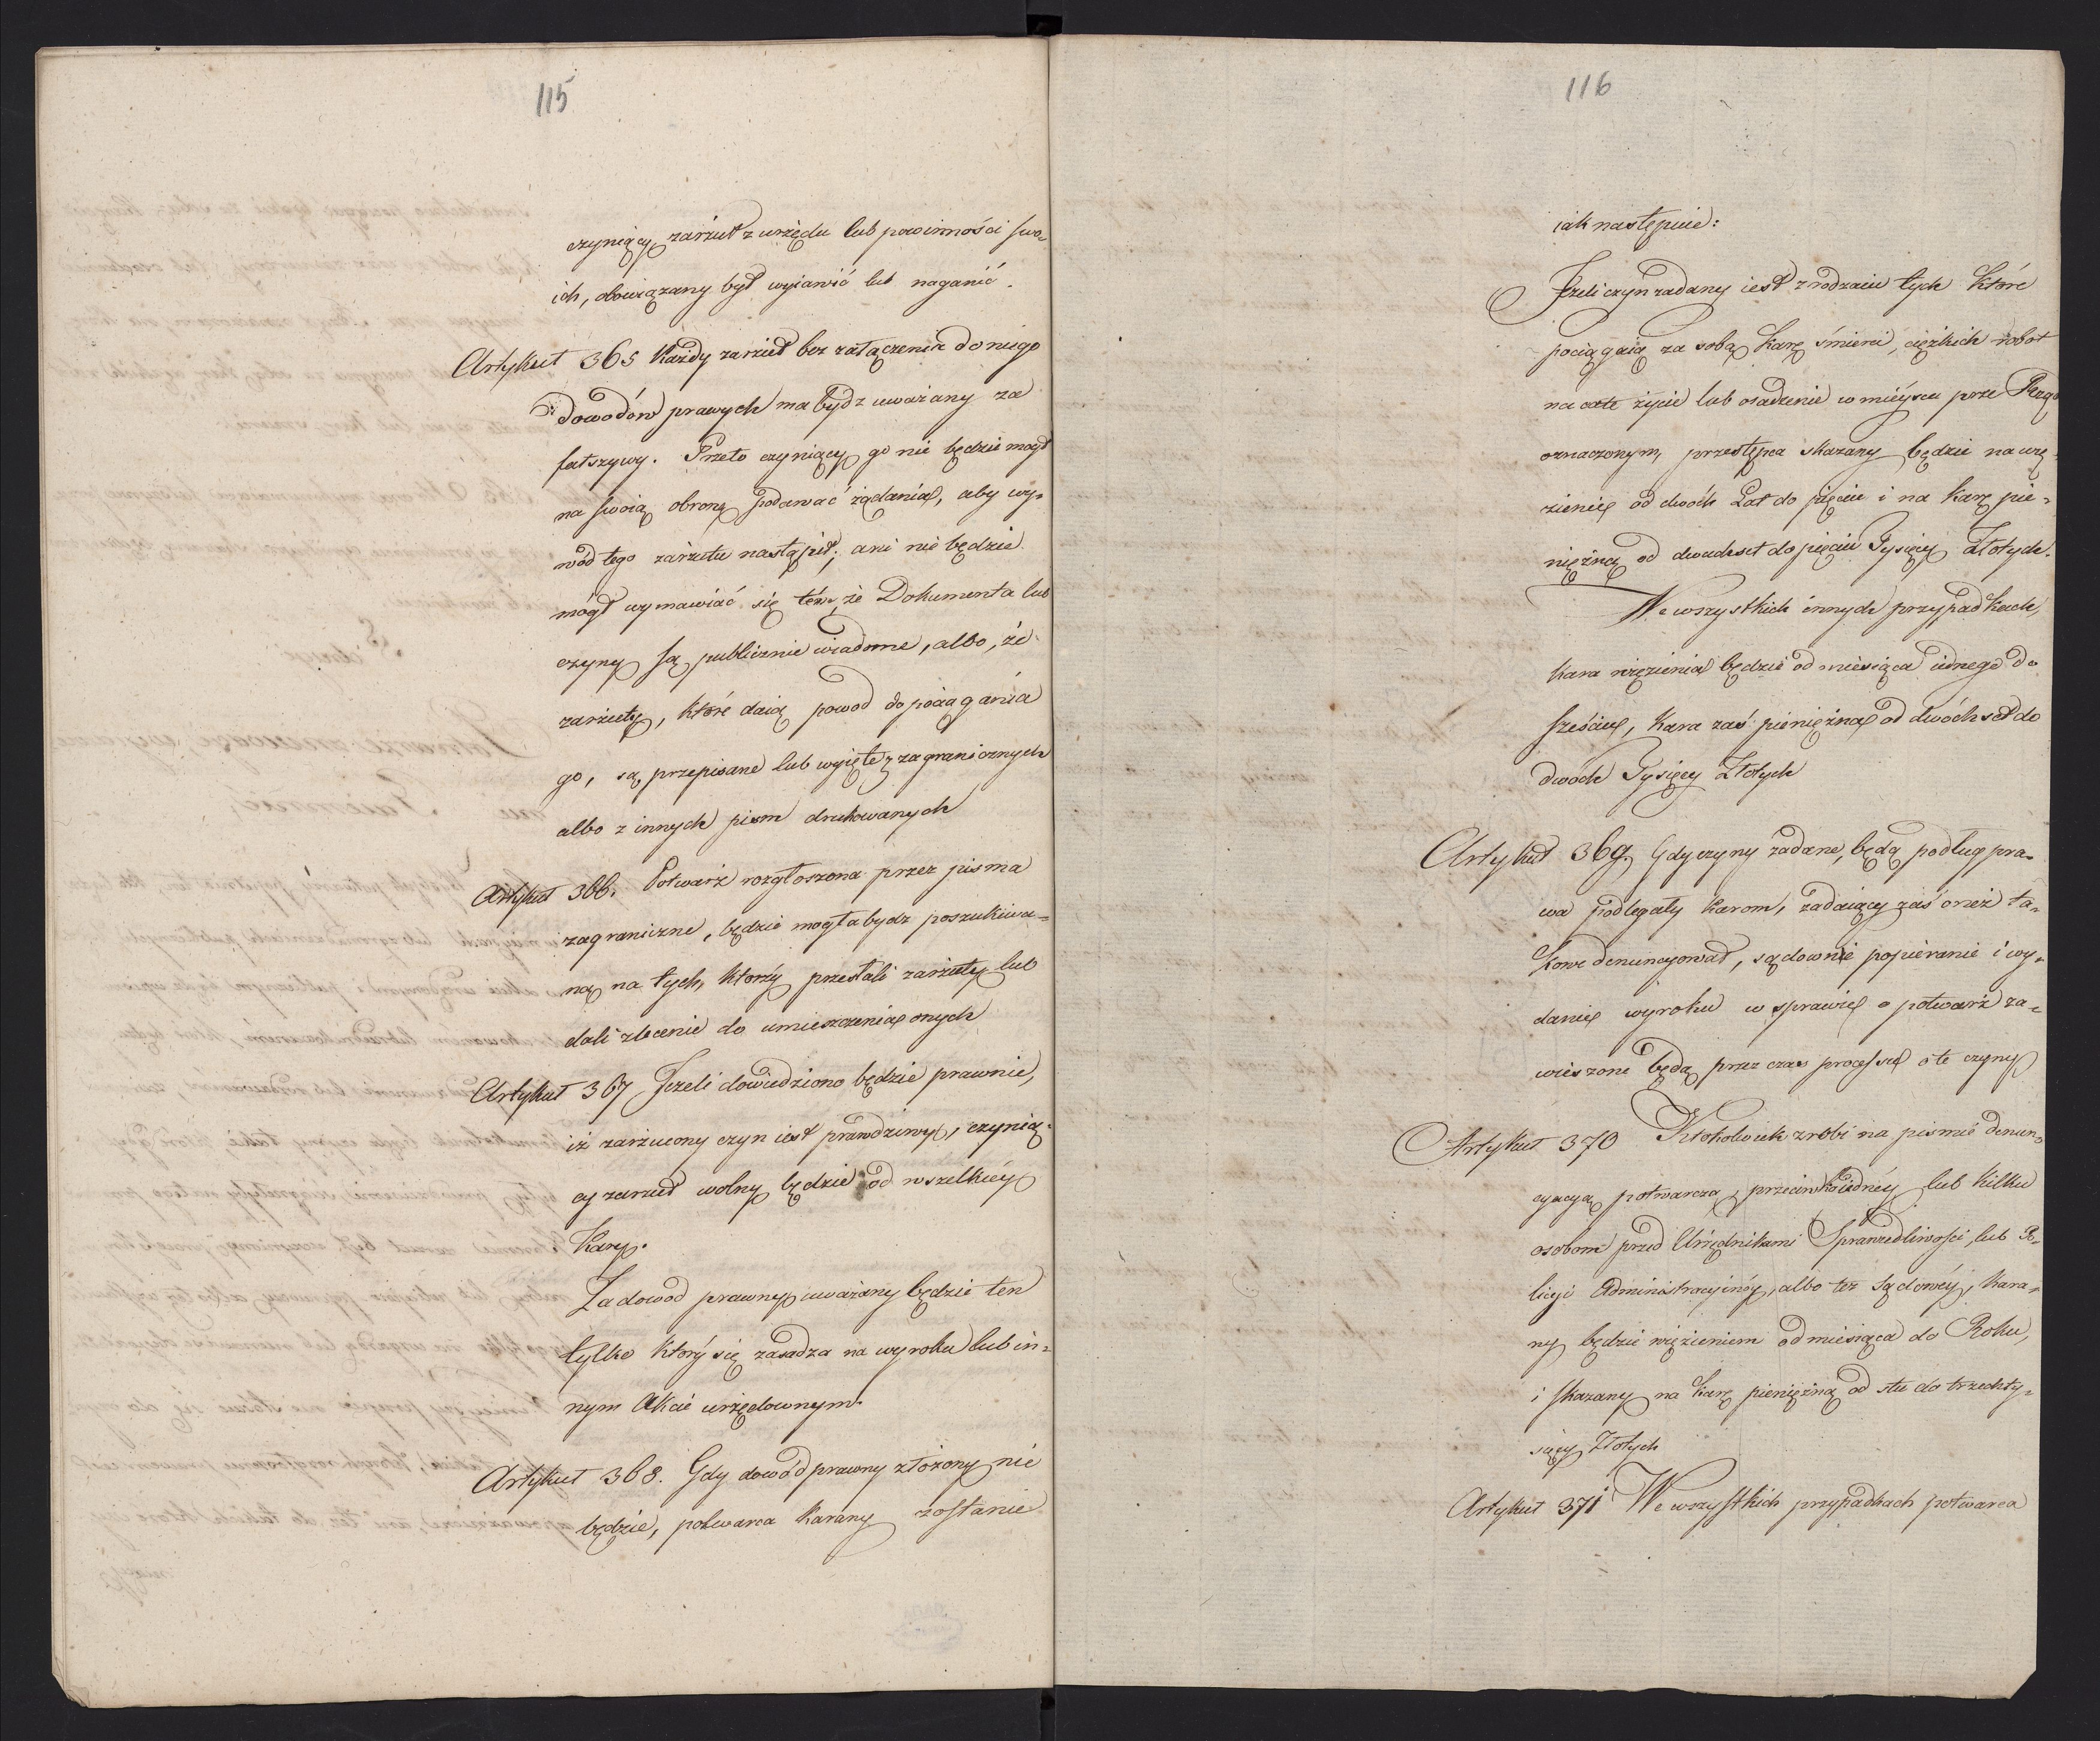 115
czyniący zarzut z urzędu lub powinności swo-
ich, obowiązany był wyiawić lub naganić.
Artykuł 365 Każdy zarzut bez załączenia do niego
dowodów prawych ma bydz uważany za
fałszywy. Przeto czyniący go nie będzie mógł
na swoią obronę podawać żądania, aby wy-
wód tego zarzutu nastąpił; ani nie będzie
mógł wymawiać się tém, że Dokumenta lub
czyny są publicznie wiadome, albo, że
zarzuty, które daią powod do pociągania
go, są przepisane lub wyięte z zagranicznych
albo z innych pism drukowanych
Artykuł 366. Potwarz rozgłoszona przez pisma
zagraniczne, będzie mogła bydz poszukiwa-
na na tych, którzy przesłali zarzuty lub
dali zlecenie do umieszczenia onych
Artykuł 367 Jeżeli dowiedziono będzie prawnie,
iż zarzucony czyn iest prawdziwy, czynią-
cy zarzut wolny będzie od wszelkiéy
Kary.
Za dowod prawny uważany będzie ten
tylko który się zasadza na wyroku lub in-
nym Akcie urzędownym.
Artykuł 368. Gdy dowód prawny złożony nie
będzie, potwarca karany zostanie
116
iak następuie:
Jeżeli czyn zadany iest z rodzaiu tych które
pociągaią za sobą Karę śmierci, ciężkich robot
na całe życie lub osadzenie w mieyscu prze Rząd
oznaczonym, przestępca skazany będzie na wię-
zienie od dwóch Lat do pięciu i na Karę pie-
niężną od dwudset do pięciu Tysięcy Złotych.
We wszystkich innych przypadkach,
kara więzienia będzie od miesiąca iednego do
sześciu, kara zaś pieniężna od dwóchset do
dwóch Tysięcy Złotych
Artykuł 369. Gdy czyny zadane, będą podług pra-
wa podlegały karom, zadaiący zaś onéż ta-
kowe denuncyował, sądownie popieranie i wy-
danie wyroku w sprawie o potwarz za-
wieszone będą przez czas processu o te czyny
Artykuł 370 Ktokolwiek zrobi na piśmie denun-
cyacyą potwarczą przeciwko iednéy lub kilku
osobom przed Urzędnikami Sprawiedliwości, lub Po-
licyi Administracyinéy, albo też Sądowéy, kara-
ny będzie więzieniem od miesiąca do Roku,
i skazany na Karę pieniężną od stu do trzech ty-
sięcy Złotych
Artykuł 371 We wszystkich przypadkach potwarca